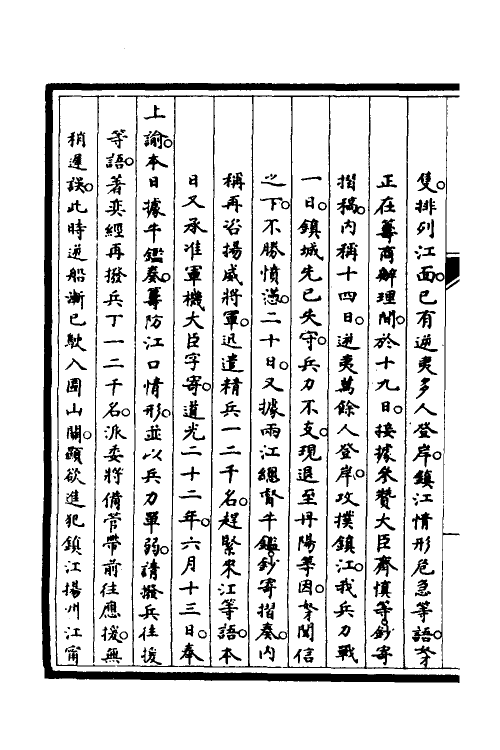 隻。排列江面。已有逆夷多人登岸。鎮江情形危急等語。奴才
正在籌商辦理間。於十九日。接據參贊大臣齊慎等。鈔寄
摺稿。內稱十四日。逆夷萬餘人登岸。攻撲鎮江。我兵力戰
一日。鎮城先已失守。兵力不支。現退至丹陽等因。奴才聞信
之下。不勝憤懣。二十日。又據兩江總督牛鑑。鈔寄摺奏。內
稱再咨揚威將軍。迅遣精兵一二千名。趕緊來江等語。本
日又承准軍機大臣字寄。道光二十二年六月十三日。奉
上諭。本日據牛鑑奏。籌防江口情形。並以兵力單弱。請撥兵往援
等語。著奕經再撥兵丁一二千名。派委將備管帶前往應援。無
稍遲誤。此時逆船漸已駛入圌山關。顯欲進犯鎮江揚州江甯